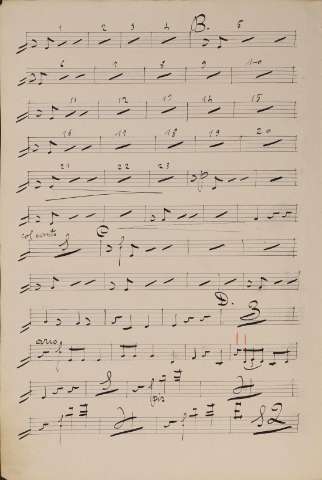 1 2 3 4 B. 5
6 7 8 9 10
11 12 13 14 15
16 17 18 19 20
21 22 23
col canto C
D. 3
ario